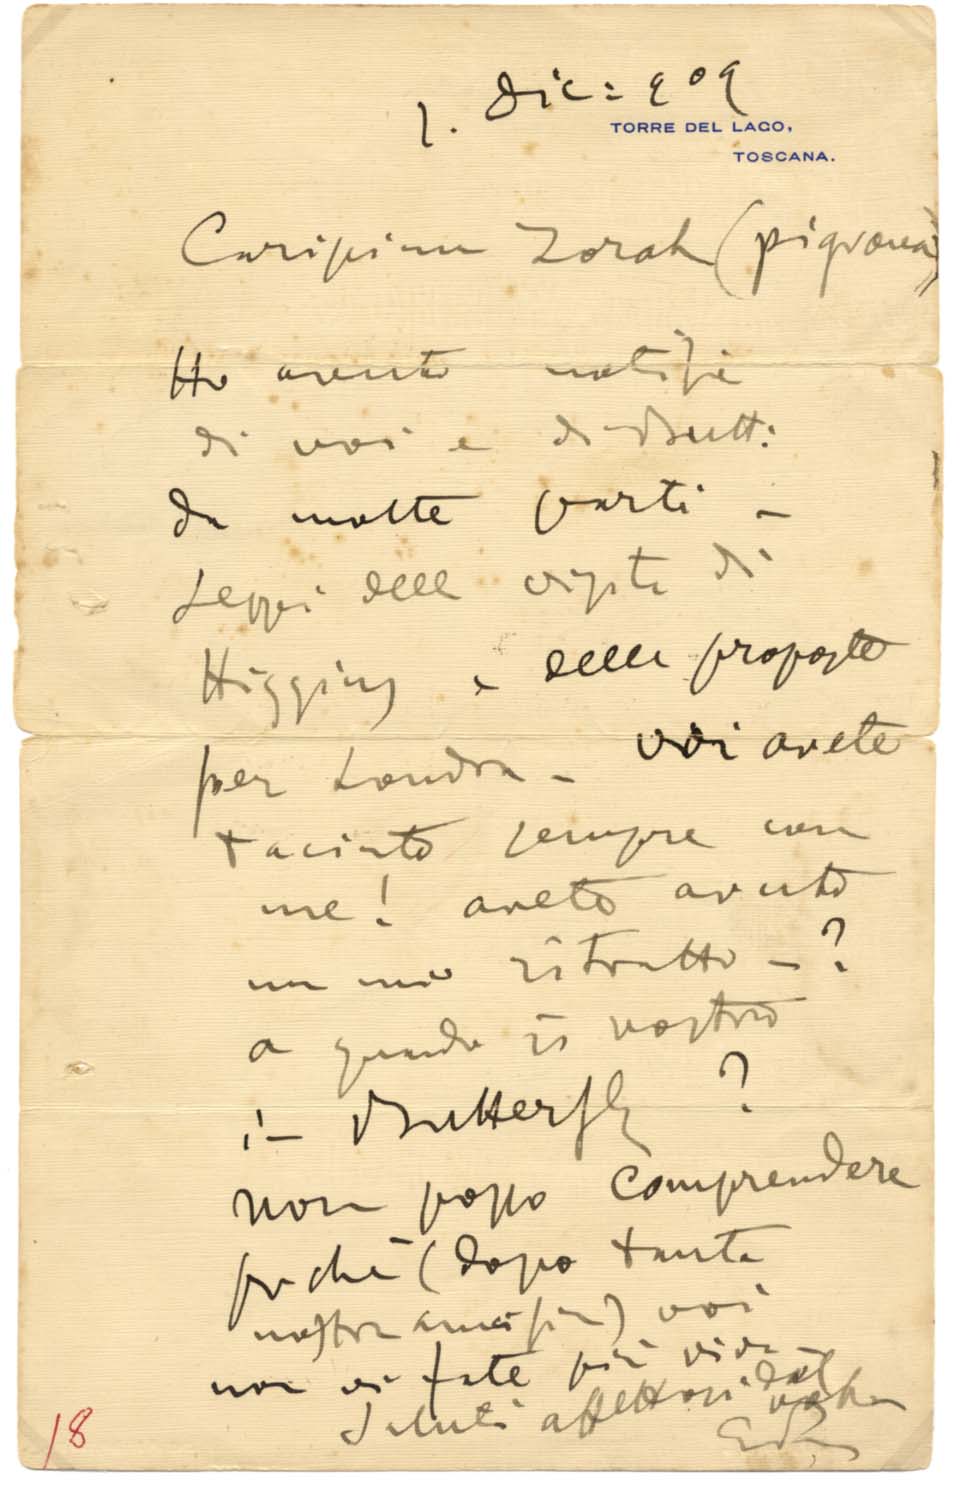 1. Dic: 909
TORRE DEL LAGO,
TOSCANA.
Carissima Zorah (pigrona)
Ho avuto notizie
di voi e di Butti
da molte parti –
seppi della visita di
Higgins e delle proposte
per Londra – voi avete
taciuto sempre con
me! avete avuto
un mio ritratto – ?
a quando il vostro
in Butterfly ?
non posso comprendere
perchè (dopo tanta
nostra amicizia) voi
non vi fate più viva –
Saluti affettosi dal vostro
18